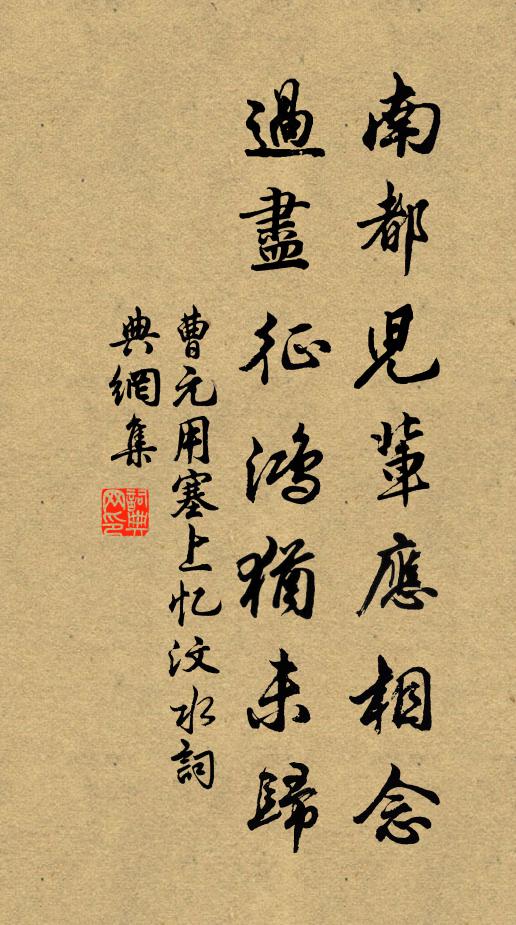 南都兒輩應相念
過盡征鴻猶未歸
曹元用塞上忆汶水詞
典網集
詞典網印